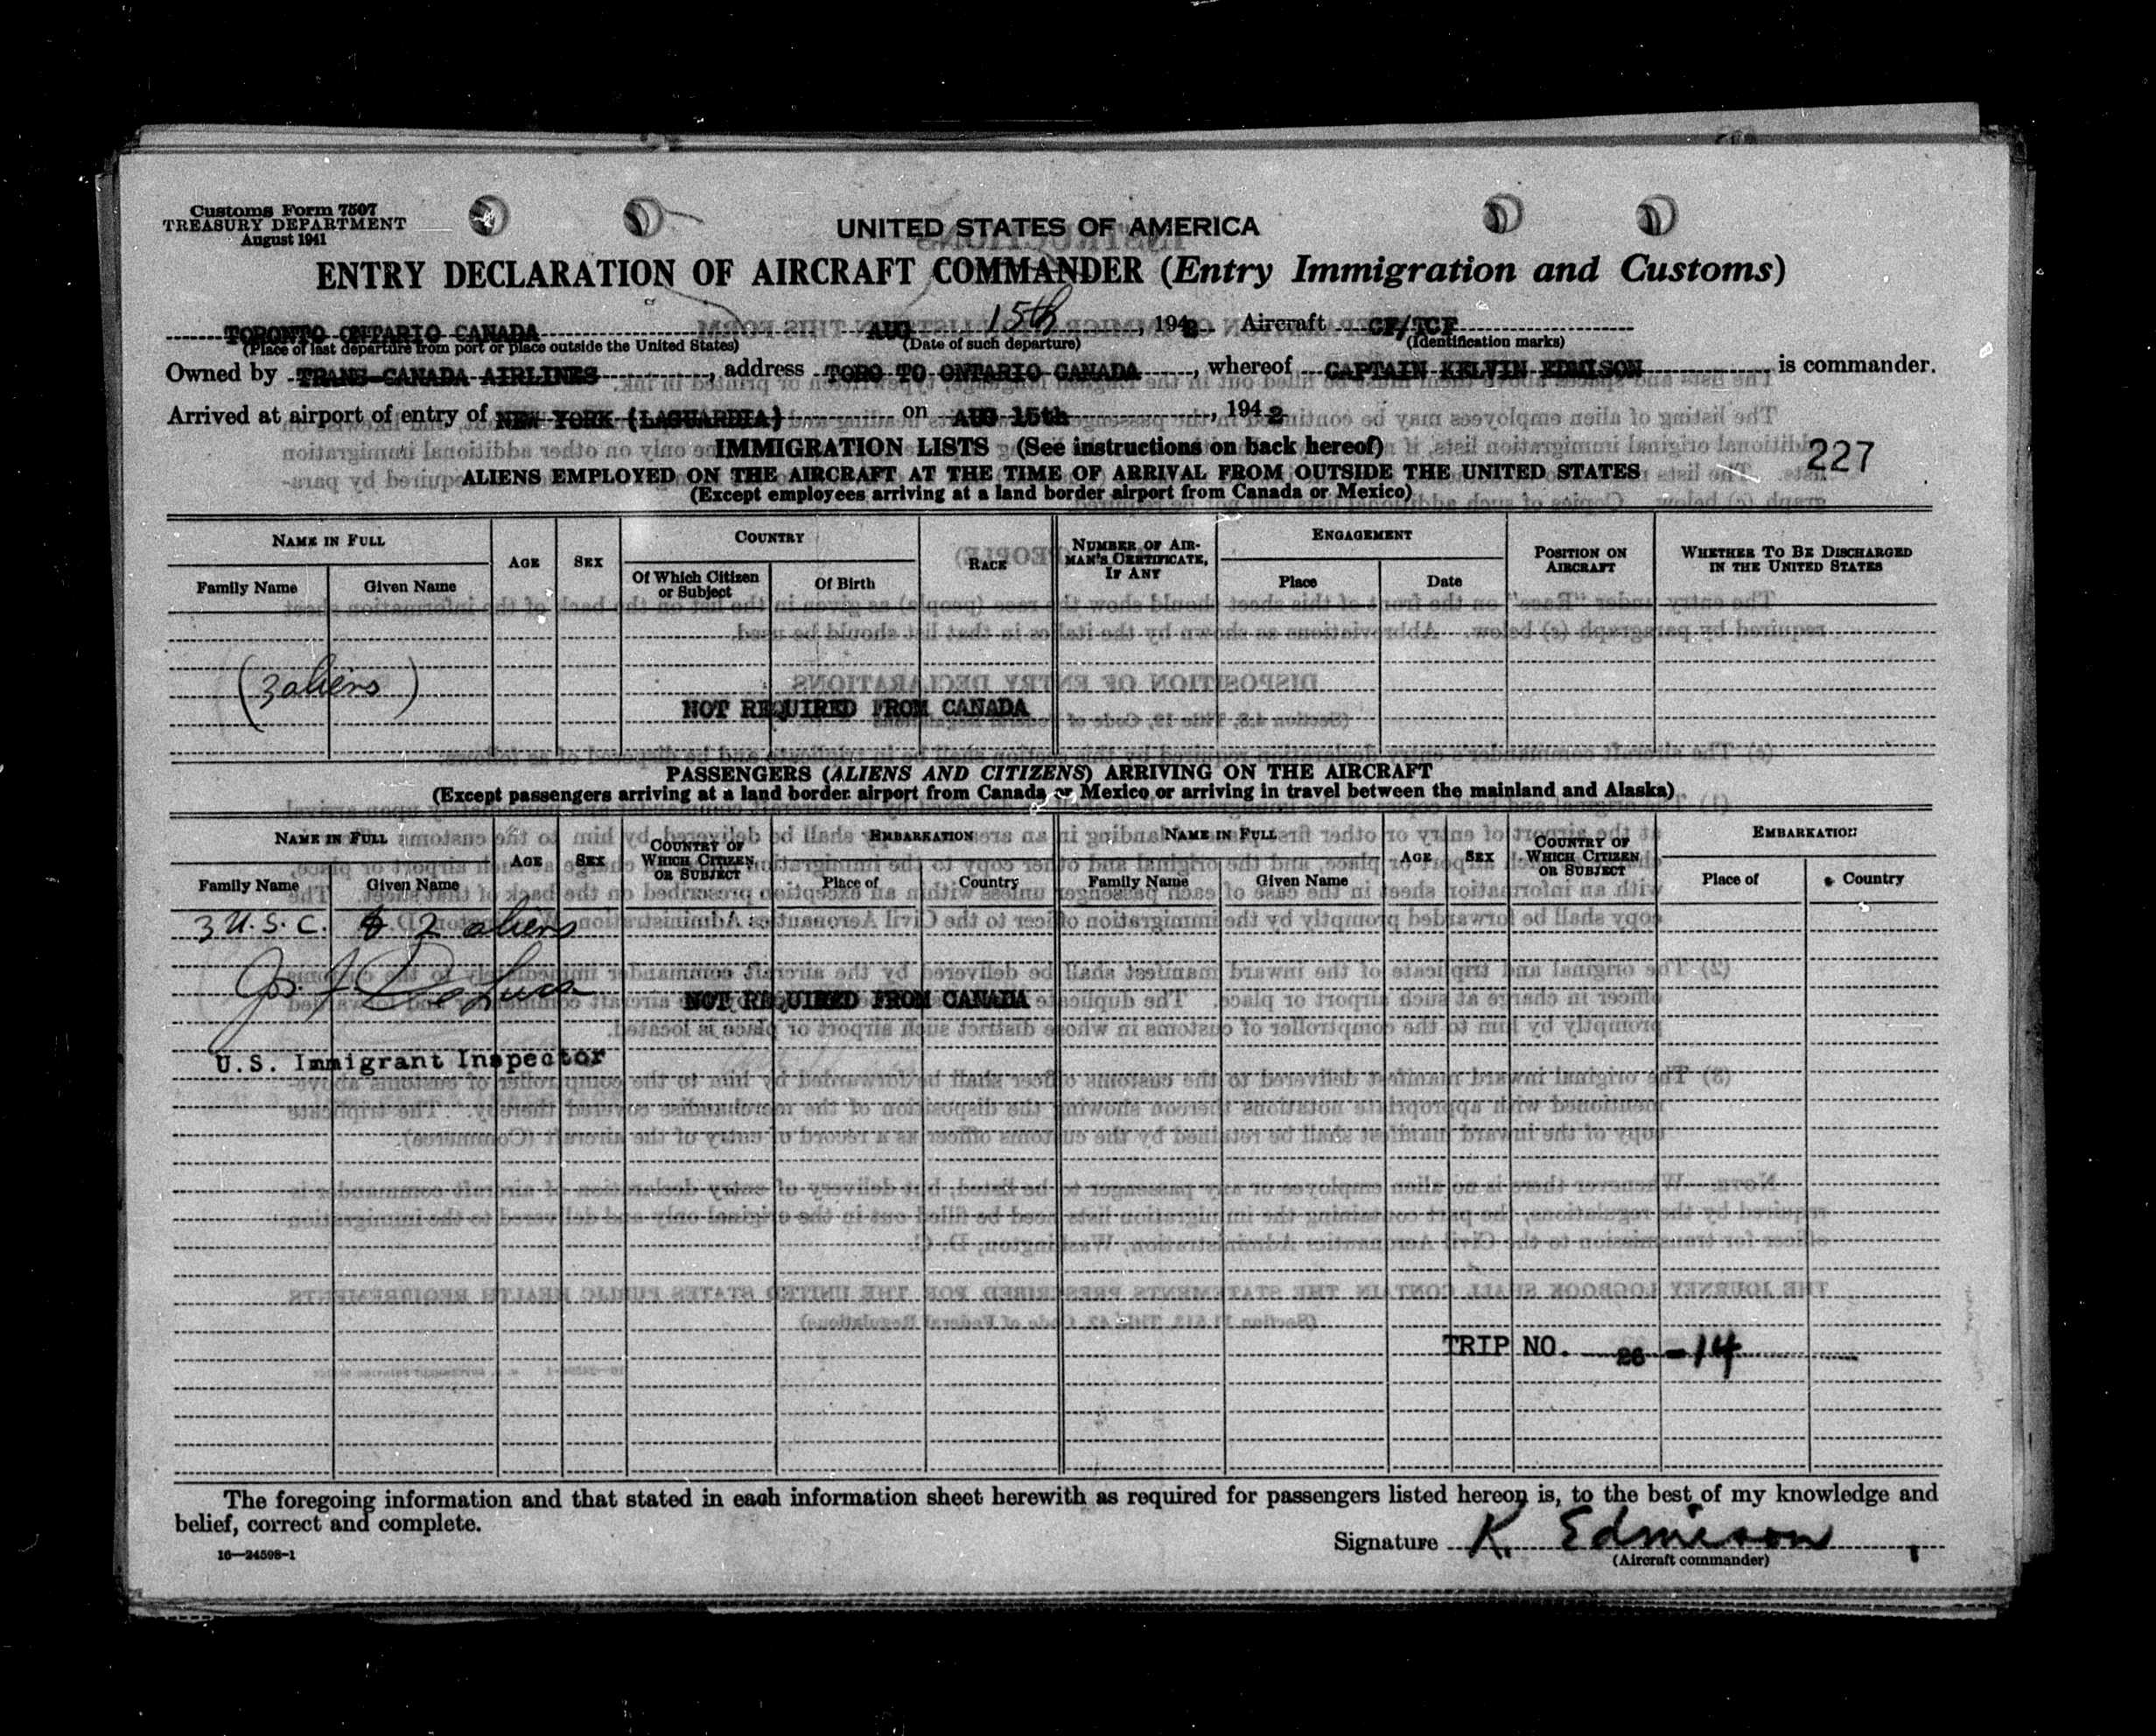 Customs Form 7507
TREASURY DEPARTMENT
August 1941
UNITED STATES OF AMERICA
ENTRY DECLARATION OF AIRCRAFT COMMANDER (Entry Immigration and Customs)
TORONTO ONTARIO CANADA AUG 15th, 1942 Aircraft CF/TCF
(Place of last departure from port or place outside the United States) (Date of such departure) (Identification marks)
Owned by TRANS-CANADA AIRLINES, address TORO TO ONTARIO CANADA, whereof CAPTAIN KELVIN EDMISON is commander.
Arrived at airport of entry of NEW YORK (LAGUARDIA) on AUG 15th, 1942
IMMIGRATION LISTS (See instructions on back hereof)
227
ALIENS EMPLOYED ON THE AIRCRAFT AT THE TIME OF ARRIVAL FROM OUTSIDE THE UNITED STATES
(Except employees arriving at a land border airport from Canada or Mexico)
NAME IN FULL AGE SEX COUNTRY RACE NUMBER OF AIRMAN'S CERTIFICATE, IF ANY ENGAGEMENT POSITION ON AIRCRAFT WHETHER TO BE DISCHARGED IN THE UNITED STATES
Family Name Given Name Of Which Citizen or Subject Of Birth Place Date
(3 aliens)
NOT REQUIRED FROM CANADA
PASSENGERS (ALIENS AND CITIZENS) ARRIVING ON THE AIRCRAFT
(Except passengers arriving at a land border airport from Canada or Mexico or arriving in travel between the mainland and Alaska)
NAME IN FULL AGE SEX COUNTRY OF WHICH CITIZEN OR SUBJECT EMBARKATION NAME IN FULL AGE SEX COUNTRY OF WHICH CITIZEN OR SUBJECT EMBARKATION
Family Name Given Name Place of Country Family Name Given Name Place of Country
3 U.S.C. & 2 aliens
Jos. J. DeLuca
NOT REQUIRED FROM CANADA
U.S. Immigrant Inspector
TRIP NO. 26 -14
The foregoing information and that stated in each information sheet herewith as required for passengers listed hereon is, to the best of my knowledge and
belief, correct and complete.
Signature K. Edmison
(Aircraft commander)
16—24598-1